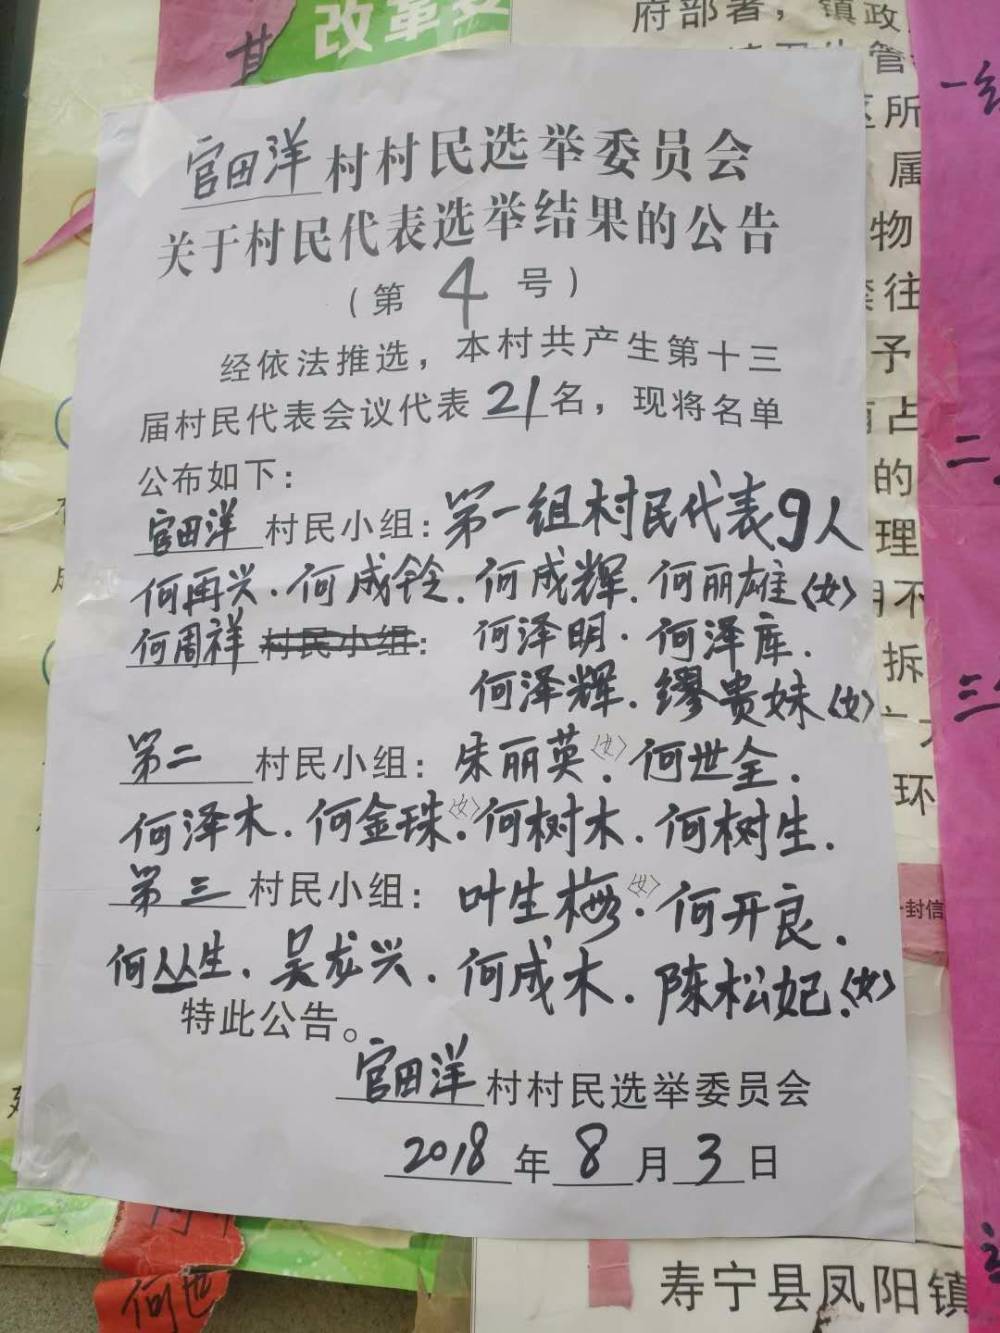 改革
其
府部署，镇政
管
区所
属
物
往
予
占
的
理
不
拆
环
一
二、
三
官田洋村村民选举委员会
关于村民代表选举结果的公告
（第 4 号）
经依法推选，本村共产生第十三
届村民代表会议代表21名，现将名单
公布如下：
官田洋村民小组：第一组村民代表9人
何再兴．何成铃．何成辉．何丽雄〈女〉
何周祥村民小组：何泽明．何泽库．
何泽辉．缪贵妹〈女〉
第二村民小组：朱丽英〈女〉．何世全．
何泽木．何金珠〈女〉．何树木．何树生．
第三村民小组：叶生梅〈女〉．何开良．
何丛生．吴龙兴．何成木．陈松妃．〈女〉
特此公告。
官田洋村村民选举委员会
2018年8月3日
一封信
何世
寿宁县凤阳镇